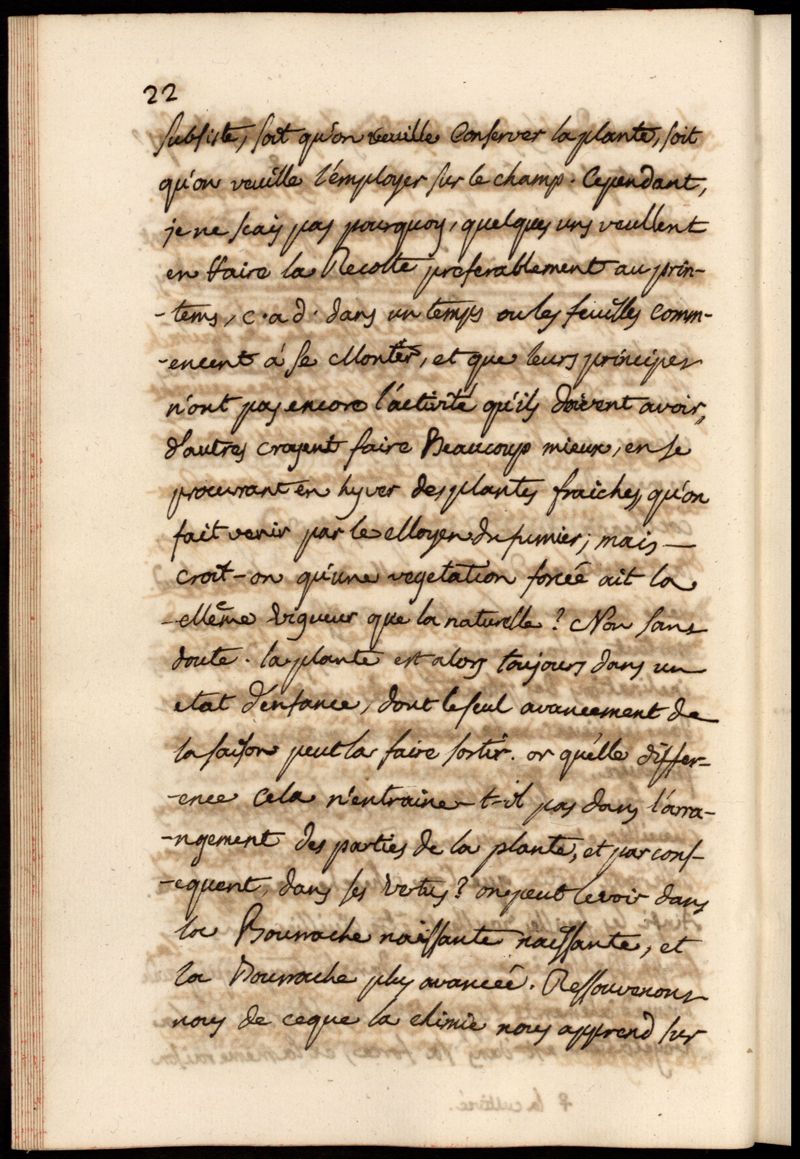 22
subsiste, soit qu'on veuille Conserver la plante, soit
qu'on veuille l'employer sur le champ. Cependant,
je ne scais pas pourquoy, quelques uns veullent
en ffaire la Recolte preferablement au prin-
-tems, c. a d. dans un temps ou les feuilles comm-
-encent á se Montér, et que leurs principes
n'ont pas encore l'activité qu'ils doivent avoir,
d'autres croyent faire Beaucoup mieux, en se
procurant en hyver des plantes fraiches, qu'on
fait venir par le Moyen du fumier; mais —
croit-on qu'une vegetation forcéé ait la
-Méme vigueur que la naturelle? Non sans
doute. la plante est alors toujours dans un
etat d'enfance, dont le seul avancement de
la saison peut la faire sortir. or qu'elle differ-
-ence cela n'entraine-t-il pas dans l'arra-
-ngement des parties de la plante, et par cons-
-equent, dans ses vertus? on peut le voir dans
la Bourrache naissante naissante, et
la Bourrache plus avancéé. Ressouvenons
nous de ce que la chimie nous apprend sur